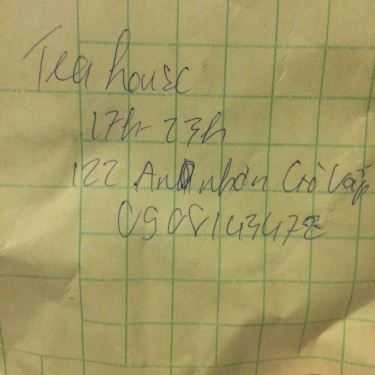 Tea house
17h - 23h
122 An nhơn Gò Vấp
0908143478